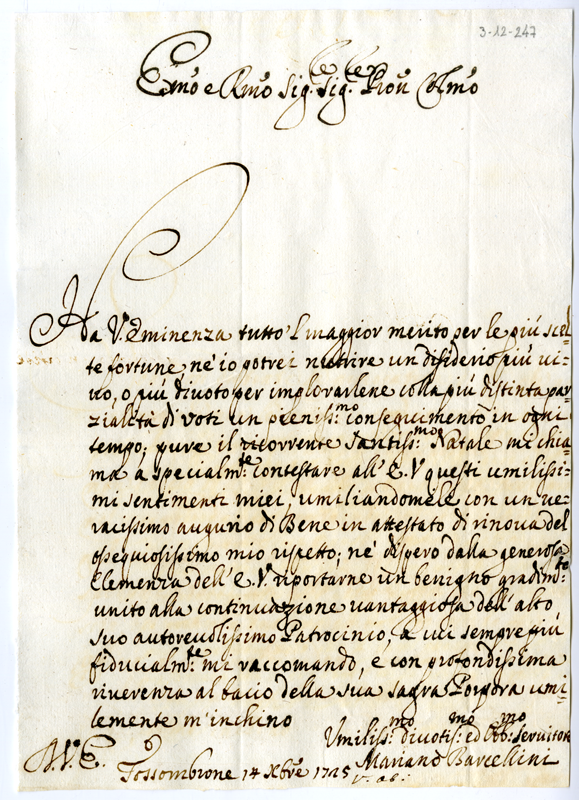 3-12-247
Em̃o e Rm̃o Sig.re Sig.re Pron̄ Colm̃o
Ha V.a Eminenza tutto 'l maggior merito per le più scel-
te fortune, nè io potrei nutrire un disiderio più vi-
vo, o più divoto per implorarlene colla più distinta par-
zialità di voti un pieniss:mo conseguimento in ogni
tempo; pure il ricorrente Santiss:mo Natale mi chia-
ma a specialm:te contestare all' E. V. questi umilissi-
mi sentimenti miei, umiliandomele con un ve-
racissimo augurio di Bene in attestato di rinova del
ossequiosissimo mio rispetto; nè dispero dalla generosa
Clemenza dell' E. V. riportarne un benigno gradim:to
unito alla continuazione vantaggiosa dell' alto
suo autorevolissimo Patrocinio, a cui sempre più
fiducialm:te mi raccomando, e con profondissima
riverenza al bacio della sua sagra Porpora umi-
lemente m'inchino
Umiliss:mo divotis:mo ed Obb:mo Servitore
D. V. E. Fossombrone 14 Xbre 1725
Mariano Barcellini